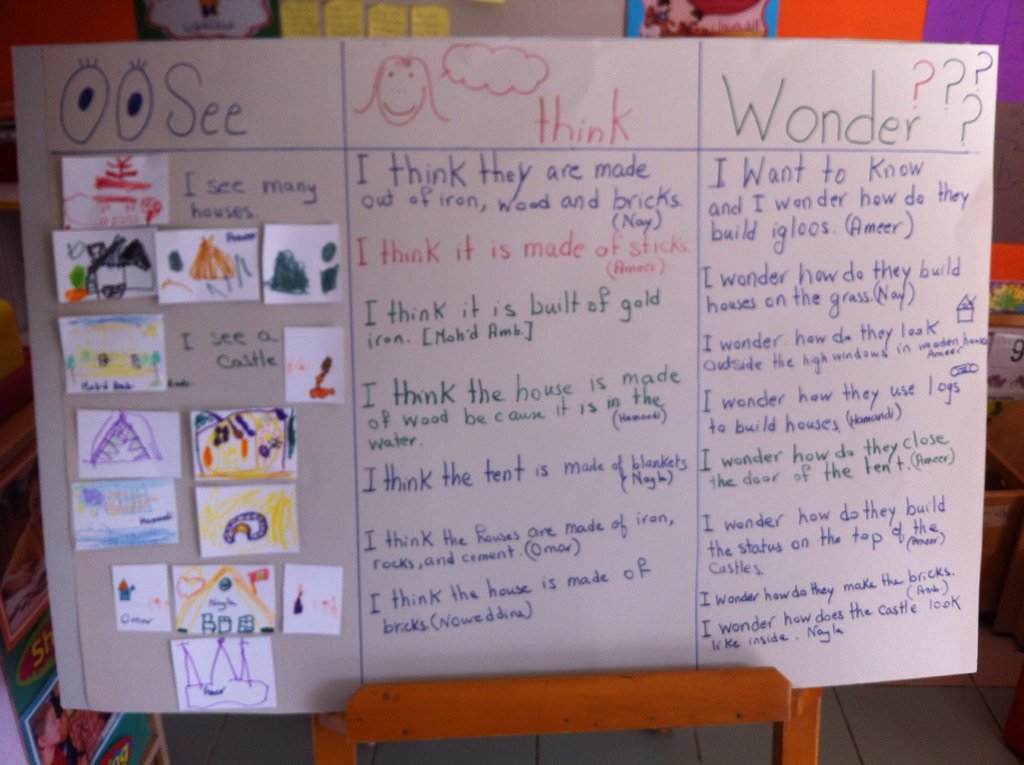 See
I see many
houses.
I see a
Castle
Moh'd Amb.
Hamandi
Omar
Nayla
think
I think they are made
out of iron, wood and bricks.
(Nay)
I think it is made of sticks.
(Ameer)
I think it is built of gold
iron. [Moh'd Amb.]
I think the house is made
of wood be cause it is in the
water.
(Hamandi)
I think the tent is made of blankets
(Nayla)
I think the houses are made of iron,
rocks, and cement. (Omar)
I think the house is made of
bricks (Noweddine)
Wonder ????
I Want to Know
and I wonder how do they
build igloos. (Ameer)
I wonder how do they build
houses on the grass. (Nay)
I wonder how do they look
outside the high windows in wooden house
Ameer
I wonder how they use logs
to build houses (Hamandi)
I wonder how do they close
the door of the tent. (Ameer)
I wonder how do they build
the status on the top of the
Castles. (Ameer)
I wonder how do they make the bricks.
I wonder how does the castle look
like inside. Nayla
9